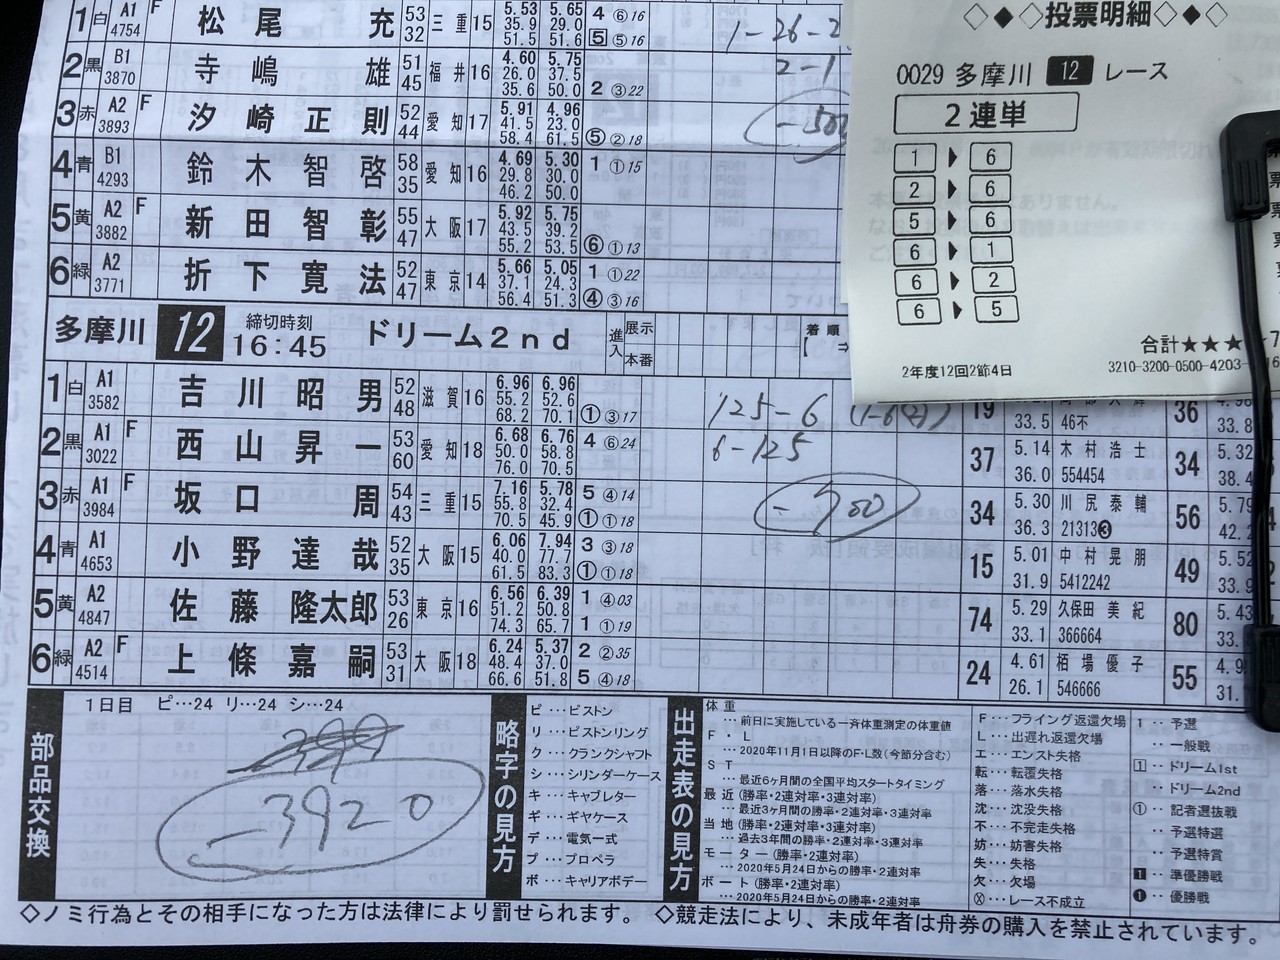 ◇◆◇投票明細◇◆◇
0029 多摩川 12 レース
2連単
1 ▶ 6
2 ▶ 6
5 ▶ 6
6 ▶ 1
6 ▶ 2
6 ▶ 5
合計★★★
2年度12回2節4日
3210-3200-0500-4203-
1 白 A1 4754 F 松尾 充 53 32 三重 15 5.53 35.9 51.5 5.65 29.0 51.6 4 ⑥16 5 ⑤16
2 黒 B1 3870 寺嶋 雄 51 45 福井 16 4.60 26.0 35.6 5.75 37.5 50.0 2 ③22
2-1
3 赤 A2 3893 F 汐崎正則 52 44 愛知 17 5.91 41.5 58.4 4.96 23.0 61.5 ⑤ ②18
4 青 B1 4293 鈴木智啓 58 35 愛知 16 4.69 29.8 46.2 5.30 30.0 50.0 1 ①15
5 黄 A2 3882 F 新田智彰 55 47 大阪 17 5.92 43.5 55.2 5.75 39.2 53.5 ⑥ ①13
6 緑 A2 3771 折下寛法 52 47 東京 14 5.66 37.1 56.4 5.05 24.3 51.3 1 ①22 ④ ③16
多摩川 12 締切時刻 16:45 ドリーム2nd 進入 展示 本番 着順
1 白 A1 3582 吉川昭男 52 48 滋賀 16 6.96 55.2 68.2 6.96 52.6 70.1 ① ③17
125-6
19 33.5 46不 36 33.8
2 黒 A1 3022 F 西山昇一 53 60 愛知 18 6.68 50.0 76.0 6.76 58.8 70.5 4 ⑥24
6-125
37 5.14 36.0 木村浩士 554454 34 5.32 38.4
3 赤 A1 3984 F 坂口 周 54 43 三重 15 7.16 55.8 70.5 5.78 32.4 45.9 5 ④14 ① ①18
34 5.30 36.3 川尻泰輔 21313❸ 56 5.79 42.2
4 青 A1 4653 小野達哉 52 35 大阪 15 6.06 40.0 61.5 7.94 77.7 83.3 3 ③18 ① ①18
15 5.01 31.9 中村晃朋 5412242 49 5.52 33.9
5 黄 A2 4847 佐藤隆太郎 53 26 東京 16 6.56 51.2 74.3 6.39 50.8 65.7 1 ④03 1 ①19
74 5.29 33.1 久保田美紀 366664 80 5.43
6 緑 A2 4514 F 上條嘉嗣 53 31 大阪 18 6.24 48.4 66.6 5.37 37.0 51.8 2 ②35 5 ④18
24 4.61 26.1 栢場優子 546666 55 31.
部品交換
1日目 ピ…24 リ…24 シ…24
-3920
略字の見方
ピ…ピストン
リ…ピストンリング
ク…クランクシャフト
シ…シリンダーケース
キ…キャブレター
ギ…ギヤケース
デ…電気一式
プ…プロペラ
ボ…キャリアボデー
出走表の見方
体重
…前日に実施している一斉体重測定の体重値
F・L
…2020年11月1日以降のF・L数(今節分含む)
ST
…最近6ヶ月間の全国平均スタートタイミング
最近(勝率・2連対率・3連対率)
…最近3ヶ月間の勝率・2連対率・3連対率
当地(勝率・2連対率・3連対率)
…過去3年間の勝率・2連対率・3連対率
モーター(勝率・2連対率)
…2020年5月24日からの勝率・2連対率
ボート(勝率・2連対率)
…2020年5月24日からの勝率・2連対率
F…フライング返還欠場
L…出遅れ返還欠場
エ…エンスト失格
転…転覆失格
落…落水失格
沈…沈没失格
不…不完走失格
妨…妨害失格
失…失格
欠…欠場
Ⓧ…レース不成立
1…予選
…一般戦
1…ドリーム1st
…ドリーム2nd
①…記者選抜戦
…予選特選
…予選特賞
1…準優勝戦
❶…優勝戦
◇ノミ行為とその相手になった方は法律により罰せられます。 ◇競走法により、未成年者は舟券の購入を禁止されています。